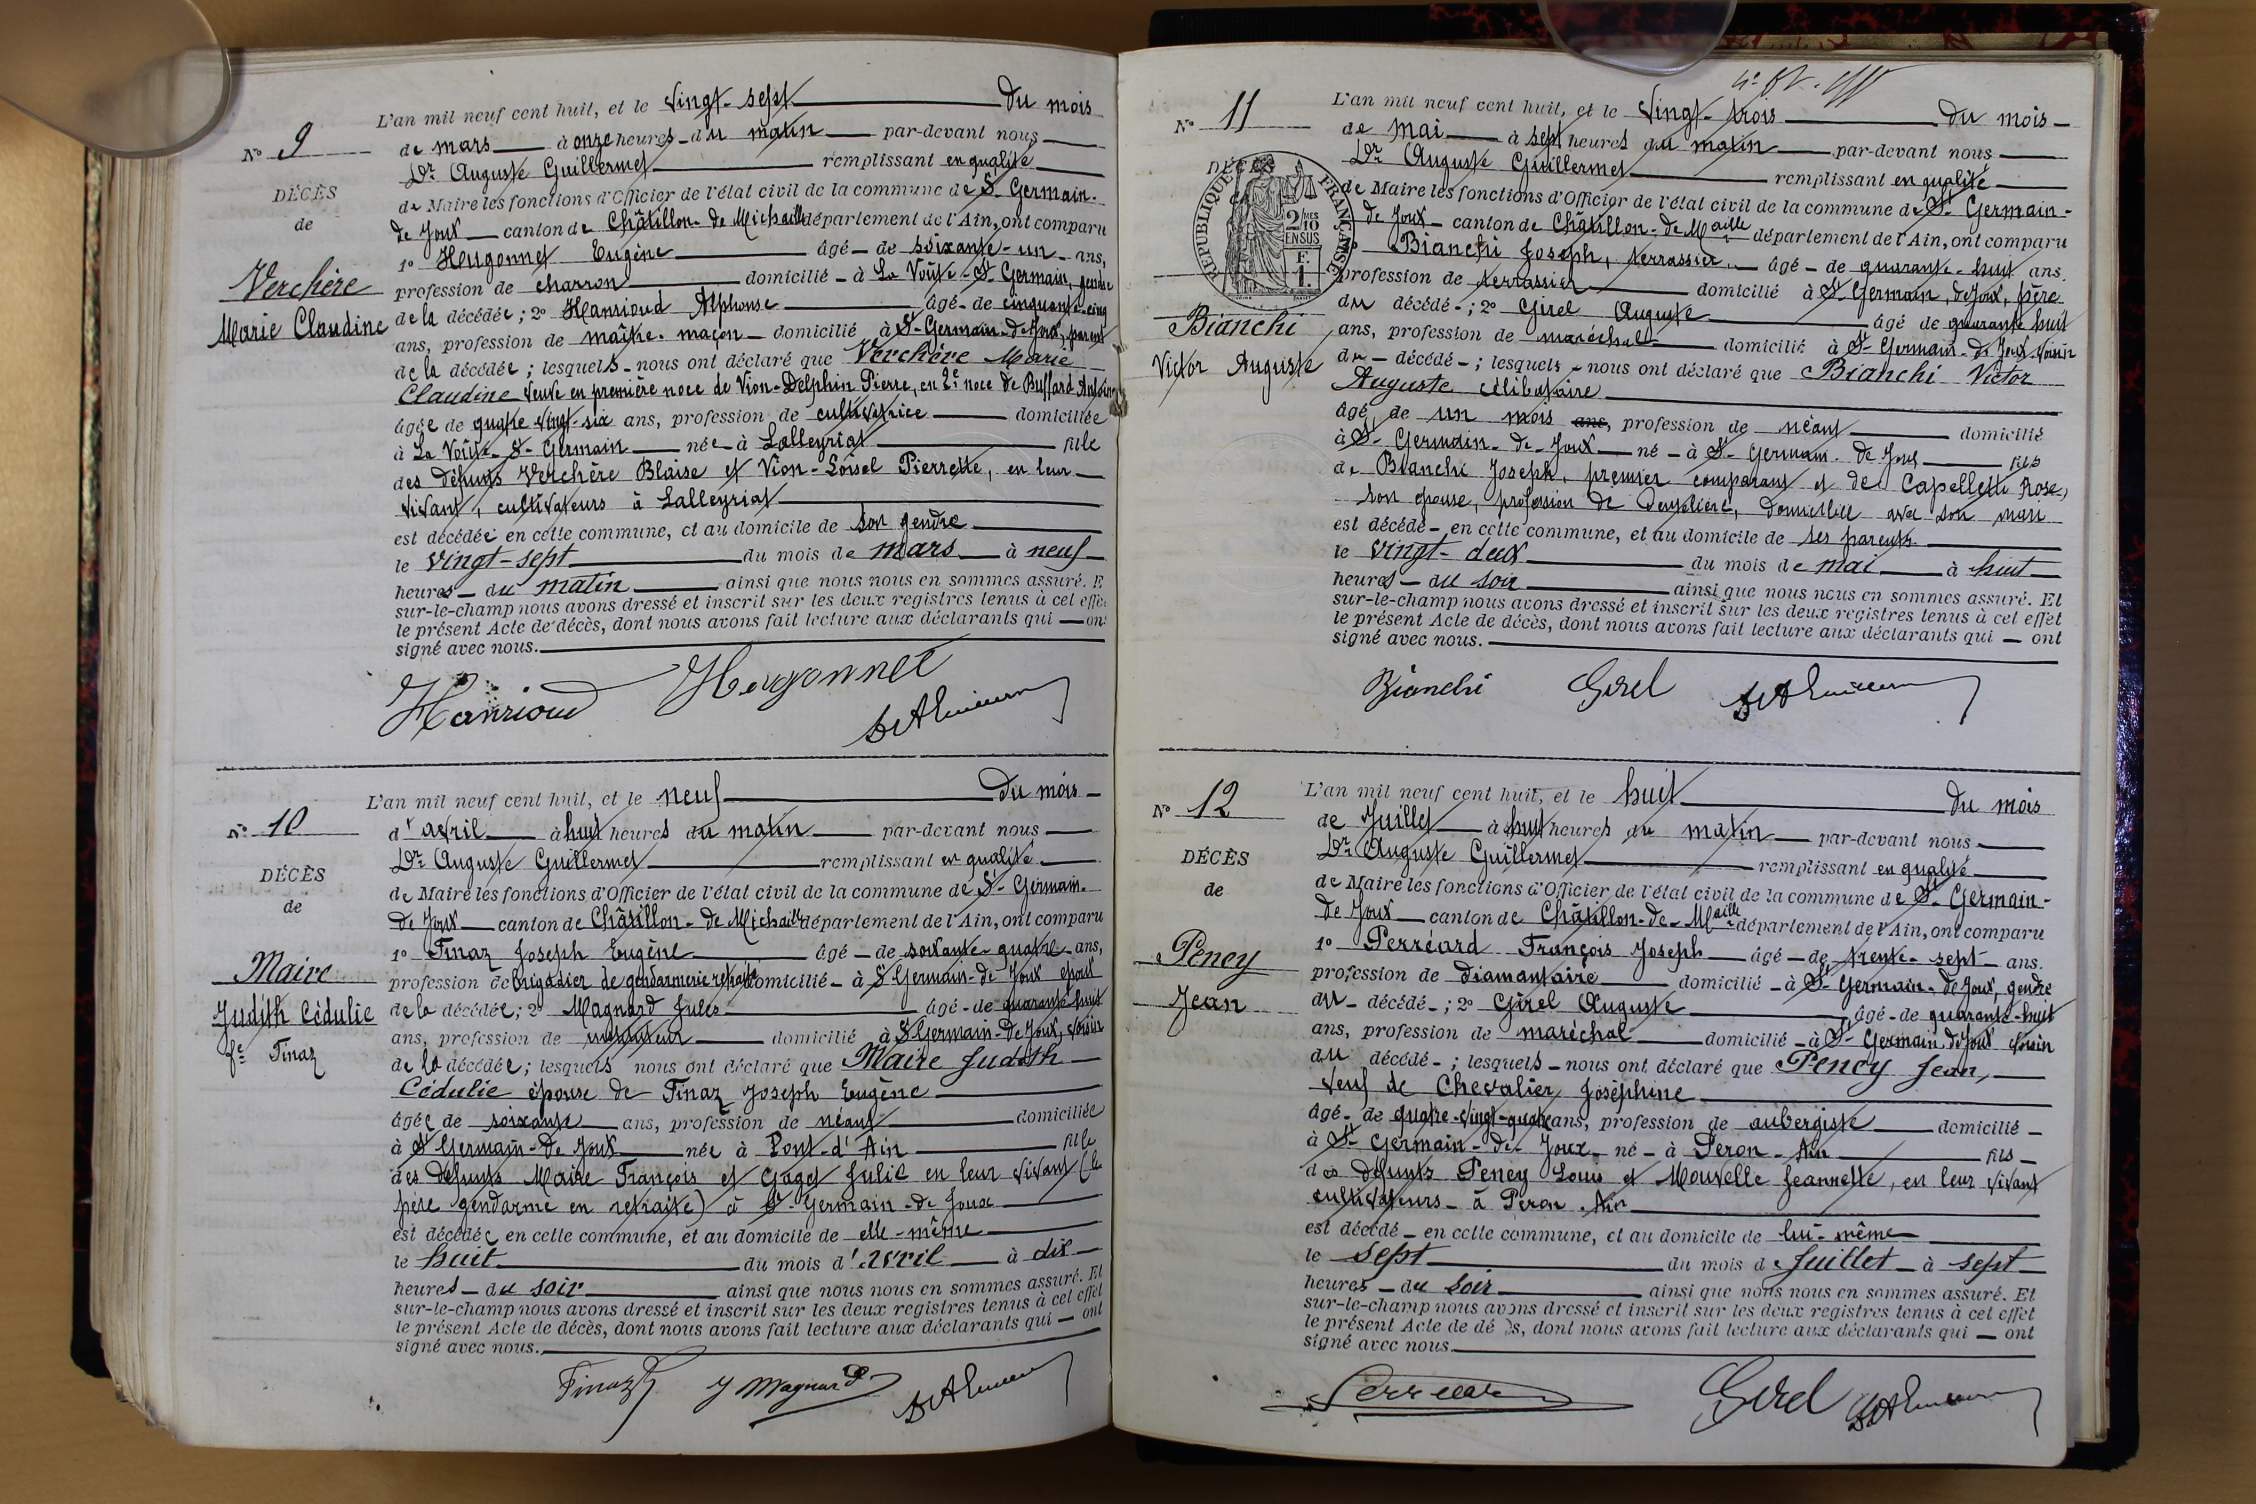 L'an mil neuf cent huit, et le vingt-sept du mois
N° 9
de mars à onze heures du matin par-devant nous
Dr Auguste Guillermet remplissant en qualité
DÉCÈS
de Maire les fonctions d'Officier de l'état civil de la commune de St Germain-
de
de Joux canton de Châtillon-de-Michaille département de l'Ain, ont comparu
1° Hugonnet Eugène âgé de soixante-un ans,
Verchère
profession de charron domicilié à La Voûte-St Germain, gendre
Marie Claudine
de la décédée; 2° Hanrioud Alphonse âgé de cinquante-cinq
ans, profession de maître-maçon domicilié à St-Germain-de-Joux, parent
de la décédée; lesquels nous ont déclaré que Verchère Marie
Claudine veuve en première noce de Vion-Delphin Pierre, en 2e noce de Buffard Antoine
âgée de quatre-vingt-six ans, profession de cultivatrice domiciliée
à La Voûte-St-Germain née à Lalleyriat fille
des défunts Verchère Blaise et Vion-Loisel Pierrette, en leur
vivant, cultivateurs à Lalleyriat
est décédée en cette commune, et au domicile de son gendre
le vingt-sept du mois de mars à neuf
heures du matin ainsi que nous nous en sommes assuré. E
sur-le-champ nous avons dressé et inscrit sur les deux registres tenus à cet effe
le présent Acte de décès, dont nous avons fait lecture aux déclarants qui on
signé avec nous.
Hanrioud Hugonnet
L'an mil neuf cent huit, et le neuf du mois
N° 10
d'avril à huit heures du matin par-devant nous
Dr Auguste Guillermet remplissant en qualité
DÉCÈS
de Maire les fonctions d'Officier de l'état civil de la commune de St-Germain-
de
de Joux canton de Châtillon-de-Michaille département de l'Ain, ont comparu
1° Tinaz Joseph Eugène âgé de soixante-quatre ans,
Maire
profession de brigadier de gendarmerie retraité domicilié à St-Germain-de-Joux époux
Judith Cédulie
de la décédée; 2° Magnard Jules âgé de quarante-huit
ans, profession de domicilié à St-Germain-de-Joux, voisin
fe Tinaz
de la décédée; lesquels nous ont déclaré que Maire Judith
Cédulie épouse de Tinaz Joseph Eugène
âgée de soixante ans, profession de néant domiciliée
à St Germain-de Joux née à Pont-d'Ain fille
des défunts Maire François et Gaget Julie en leur vivant (le
père gendarme en retraite) à St-Germain-de Joux
est décédée en cette commune, et au domicile de elle-même
le huit du mois d'Avril à dix
heures du soir ainsi que nous nous en sommes assuré. Et
sur-le-champ nous avons dressé et inscrit sur les deux registres tenus à cet effet
le présent Acte de décès, dont nous avons fait lecture aux déclarants qui ont
signé avec nous.
Tinaz J Magnard
L'an mil neuf cent huit, et le vingt-trois du mois
N° 11
de mai à sept heures du matin par-devant nous
Dr Auguste Guillermet remplissant en qualité
DÉCÈS
RÉPUBLIQUE FRANÇAISE
2/10 MES
EN SUS
F. 1.
de Maire les fonctions d'Officier de l'état civil de la commune de St-Germain-
de Joux canton de Châtillon-de-Maille département de l'Ain, ont comparu
Bianchi Joseph, terrassier âgé de quarante-huit ans,
profession de terrassier domicilié à St Germain, de Joux, père
du décédé; 2° Girel Auguste âgé de quarante huit
Bianchi
ans, profession de maréchal domicilié à St-Germain-de Joux, voisin
Victor Auguste
du décédé; lesquels nous ont déclaré que Bianchi Victor
Auguste célibataire
âgé de un mois ans, profession de néant domicilié
à St-Germain-de-Joux né à St-Germain-de Joux fils
de Bianchi Joseph, premier comparant et de Capelletti Rose,
son épouse, profession de domiciliée avec son mari
est décédé en cette commune, et au domicile de ses parents
le vingt-deux du mois de mai à huit
heures du soir ainsi que nous nous en sommes assuré. Et
sur-le-champ nous avons dressé et inscrit sur les deux registres tenus à cet effet
le présent Acte de décès, dont nous avons fait lecture aux déclarants qui ont
signé avec nous.
Bianchi Girel
L'an mil neuf cent huit, et le huit du mois
N° 12
de Juillet à huit heures du matin par-devant nous
Dr Auguste Guillermet remplissant en qualité
DÉCÈS
de Maire les fonctions d'Officier de l'état civil de la commune de St-Germain-
de
de Joux canton de Châtillon-de-Maille département de l'Ain, ont comparu
1° Perréard François Joseph âgé de trente-sept ans.
Peney
profession de diamantaire domicilié à St-Germain-de Joux, gendre
Jean
du décédé; 2° Girel Auguste âgé de quarante-huit
ans, profession de maréchal domicilié à St-Germain-de Joux voisin
du décédé; lesquels nous ont déclaré que Peney Jean,
veuf de Chevalier Joséphine
âgé de quatre-vingt-quatre ans, profession de aubergiste domicilié
à St-Germain-de-Joux né à Peron-Ain fils
des défunts Peney Louis et Mouvelle Jeannette, en leur vivant
cultivateurs à Peron Ain
est décédé en cette commune, et au domicile de lui-même
le sept du mois de Juillet à sept
heures du soir ainsi que nous nous en sommes assuré. Et
sur-le-champ nous avons dressé et inscrit sur les deux registres tenus à cet effet
le présent Acte de décès, dont nous avons fait lecture aux déclarants qui ont
signé avec nous.
Perréard Girel